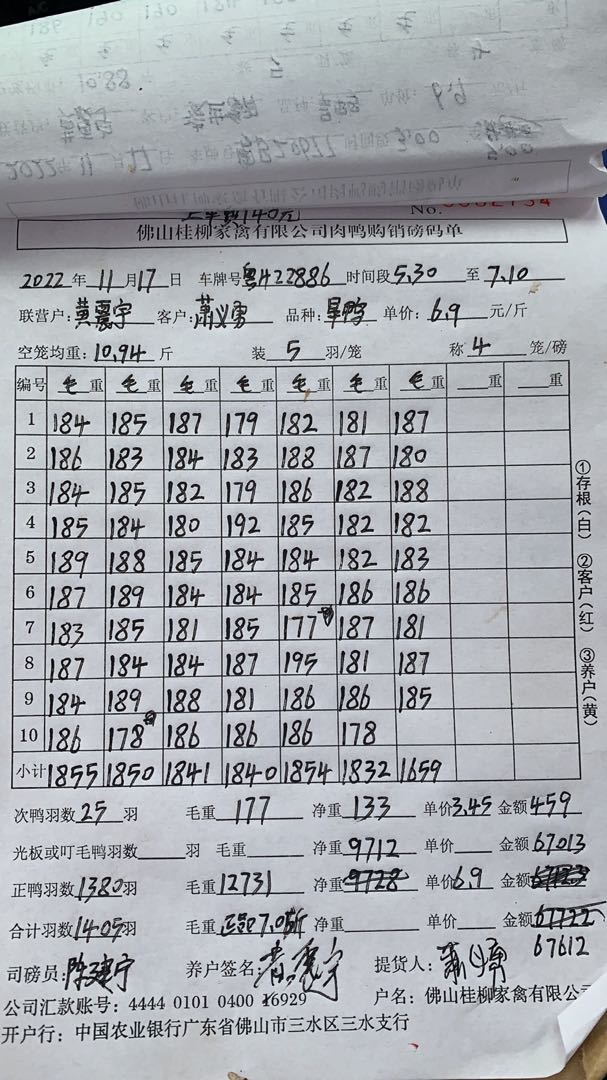 10.88
2022年11月17日
上车数140元
No.
佛山桂柳家禽有限公司肉鸭购销磅码单
2022年11月17日 车牌号粤H22886 时间段5.30至7.10
联营户:黄震宇 客户:萧义勇 品种:旱鸭 单价:6.9元/斤
空笼均重:10.94斤 装5羽/笼 称4笼/磅
编号 毛重 毛重 毛重 毛重 毛重 毛重 毛重 重 重
1 184 185 187 179 182 181 187
2 186 183 184 183 188 187 180
3 184 185 182 179 186 182 188
4 185 184 180 192 185 182 182
5 189 188 185 184 184 182 183
6 187 189 184 184 185 186 186
7 183 185 181 185 177 187 181
8 187 184 184 187 195 181 187
9 184 189 188 181 186 186 185
10 186 178 186 186 186 178
小计 1855 1850 1841 1840 1854 1832 1659
①存根(白) ②客户(红) ③养户(黄)
次鸭羽数25羽 毛重177 净重133 单价3.45 金额459
光板或叮毛鸭羽数 羽 毛重 净重9712 单价 金额67013
正鸭羽数1380羽 毛重12731 净重9728 单价6.9 金额
合计羽数1405羽 毛重 7.05斤 净重 单价 金额67722
67612
司磅员: 养户签名:黄震宇 提货人:萧义勇
公司汇款账号:4444 0101 0400 16929 户名:佛山桂柳家禽有限公
开户行:中国农业银行广东省佛山市三水区三水支行